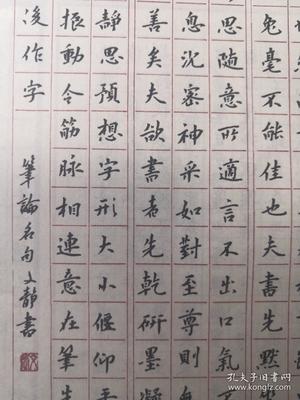 兔毫不能佳也夫書先默
思隨意所適言不出口氣
息沈密神采如對至尊則
善矣夫欲書者先乾研墨凝
靜思預想字形大小偃仰平
振動令筋脈相連意在筆
後作字
筆論名句文靜書
孔夫子旧书网